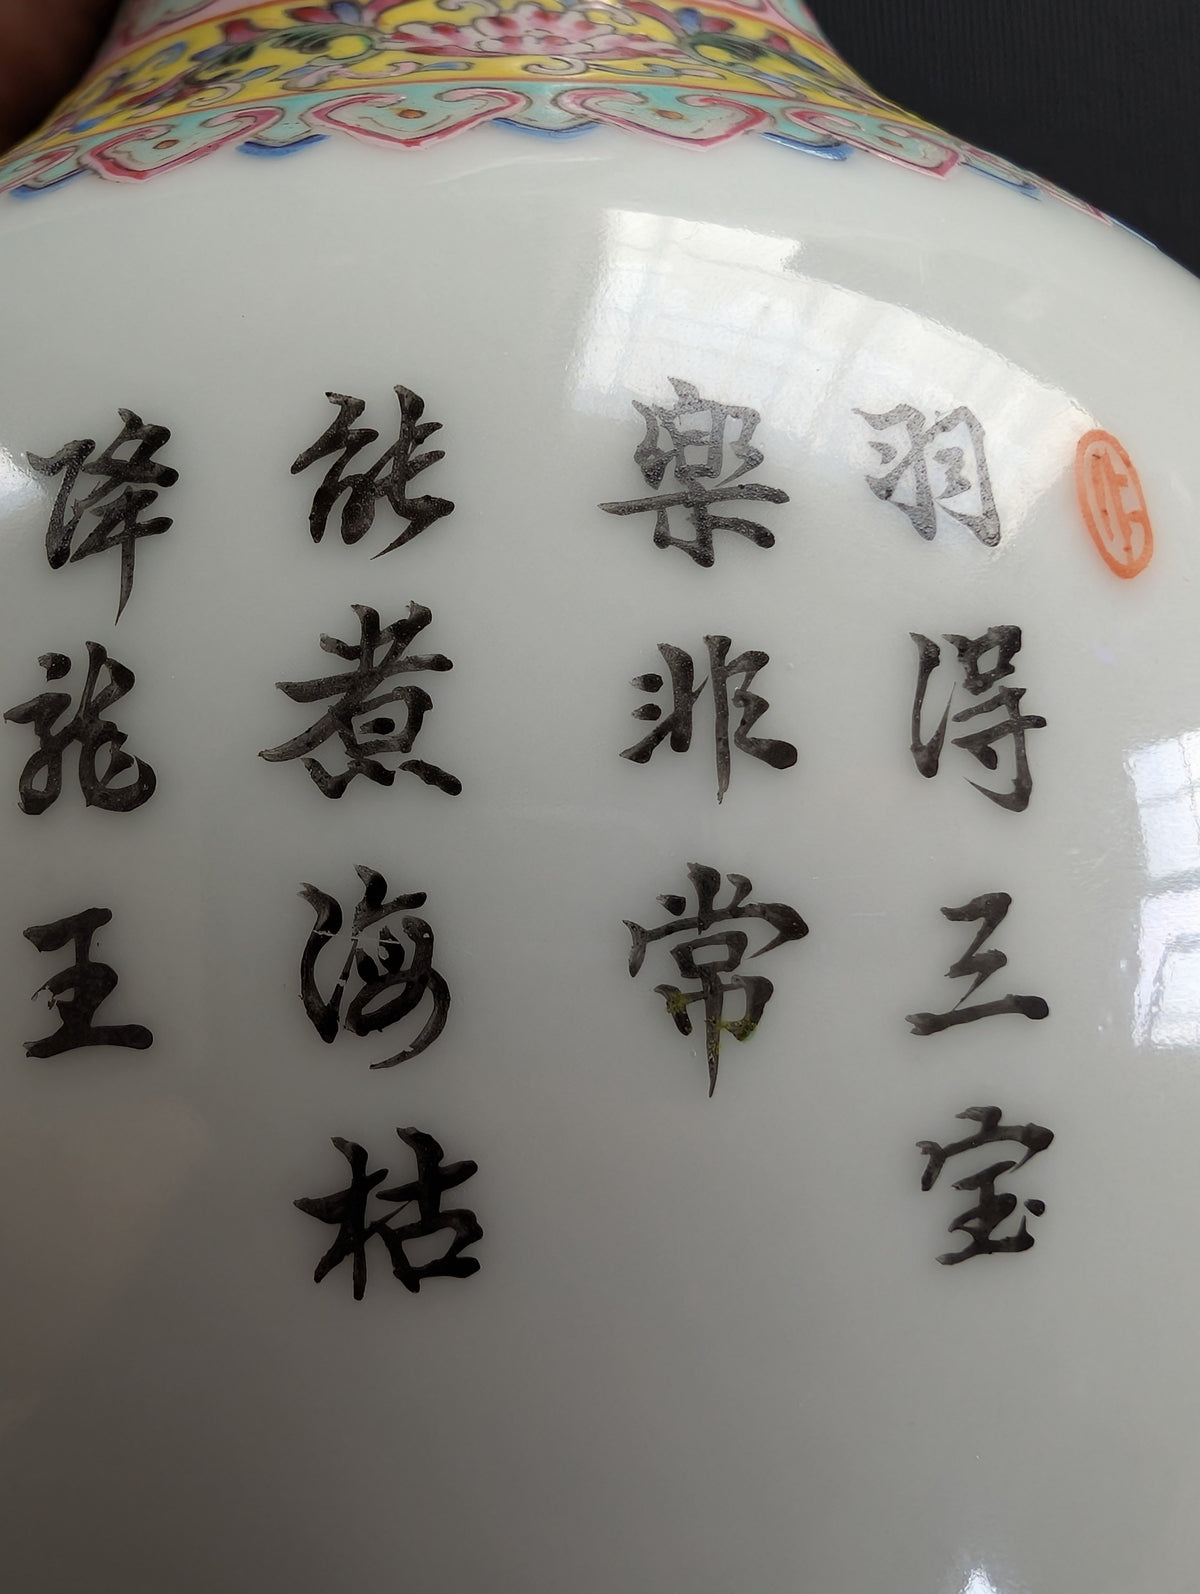 羽得三宝
樂非常
能煮海枯
降龍王